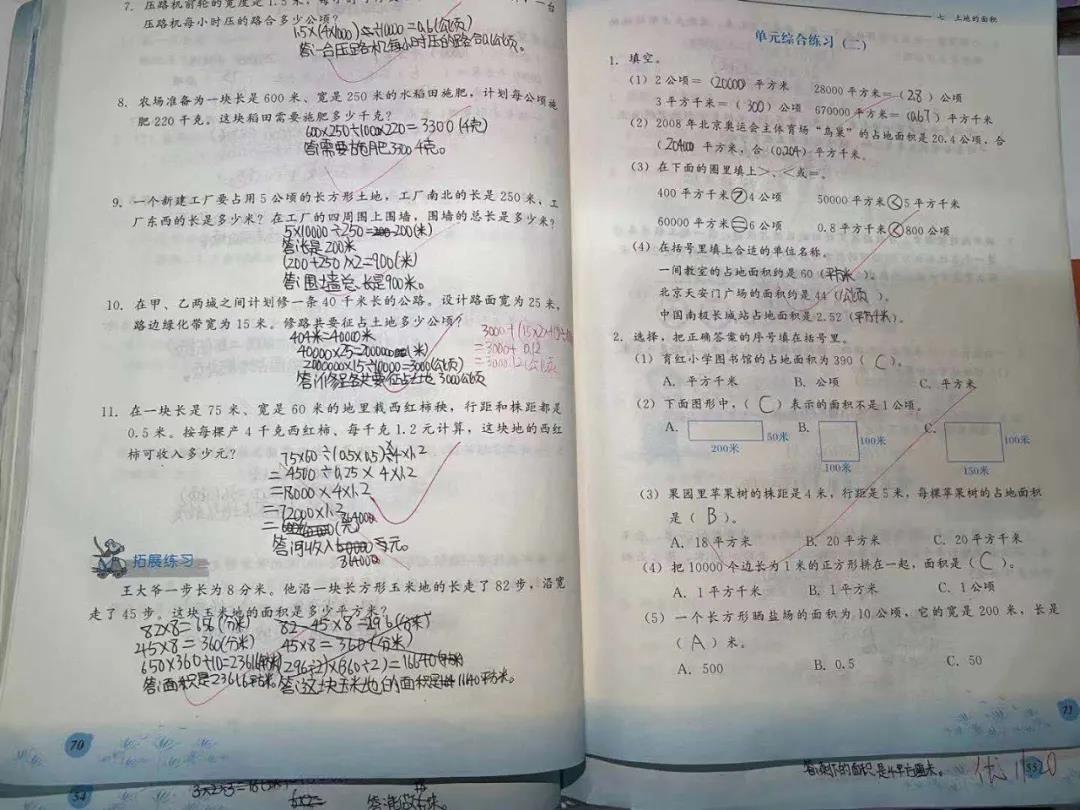 7. 压路机前轮的宽度是1.5米,
压路机每小时压的路合多少公顷?
1.5×(4×1000)÷10000=0.6(公顷)
答:一台压路机每小时压的路合0.6公顷。
8. 农场准备为一块长是600米、宽是250米的水稻田施肥,计划每公顷施
肥220千克。这块稻田需要施肥多少千克?
答:需要施肥3300千克。
9. 一个新建工厂要占用5公顷的长方形土地,工厂南北的长是250米,工
厂东西的长是多少米?在工厂的四周围上围墙,围墙的总长是多少米?
5×10000÷250=200(米)
答:长是200米
(200+250)×2=900(米)
答:围墙总长是900米。
10. 在甲、乙两城之间计划修一条40千米长的公路。设计路面宽为25米,
路边绿化带宽为15米。修路共要征占土地多少公顷?
40000×25=
答:修路共要征占土地3000公顷
11. 在一块长是75米、宽是60米的地里栽西红柿秧,行距和株距都是
0.5米。按每棵产4千克西红柿、每千克1.2元计算,这块地的西红
柿可收入多少元?
75×60÷(0.5×0.5)×4×1.2
=4500÷0.25×4×1.2
=18000×4×1.2
=72000×1.2
拓展练习
王大爷一步长为8分米。他沿一块长方形玉米地的长走了82步,沿宽
走了45步。这块玉米地的面积是多少平方米?
45×8=360(分米) 45×8=360(分米)
70
七 土地的面积
单元综合练习(二)
1. 填空。
(1) 2公顷=(20000)平方米 28000平方米=(2.8)公顷
3平方千米=(300)公顷 670000平方米=(0.67)平方千米
(2) 2008年北京奥运会主体育场“鸟巢”的占地面积是20.4公顷,合
(204000)平方米,合(0.204)平方千米。
(3) 在下面的圈里填上>、<或=。
400平方千米>4公顷 50000平方米<5平方千米
60000平方米=6公顷 0.8平方千米<800公顷
(4) 在括号里填上合适的单位名称。
一间教室的占地面积约是60(平方米)。
北京天安门广场的面积约是44(公顷)。
中国南极长城站占地面积是2.52(平方千米)。
2. 选择,把正确答案的序号填在括号里。
(1) 育红小学图书馆的占地面积为390(C)。
A. 平方千米 B. 公顷 C. 平方米
(2) 下面图形中,(C)表示的面积不是1公顷。
A. 50米 B. 100米 C. 100米
200米 100米 150米
(3) 果园里苹果树的株距是4米,行距是5米,每棵苹果树的占地面积
是(B)。
A. 18平方米 B. 20平方米 C. 20平方千米
(4) 把10000个边长为1米的正方形拼在一起,面积是(C)。
A. 1平方千米 B. 1平方米 C. 1公顷
(5) 一个长方形晒盐场的面积为10公顷,它的宽是200米,长是
(A)米。
A. 500 B. 0.5 C. 50
71